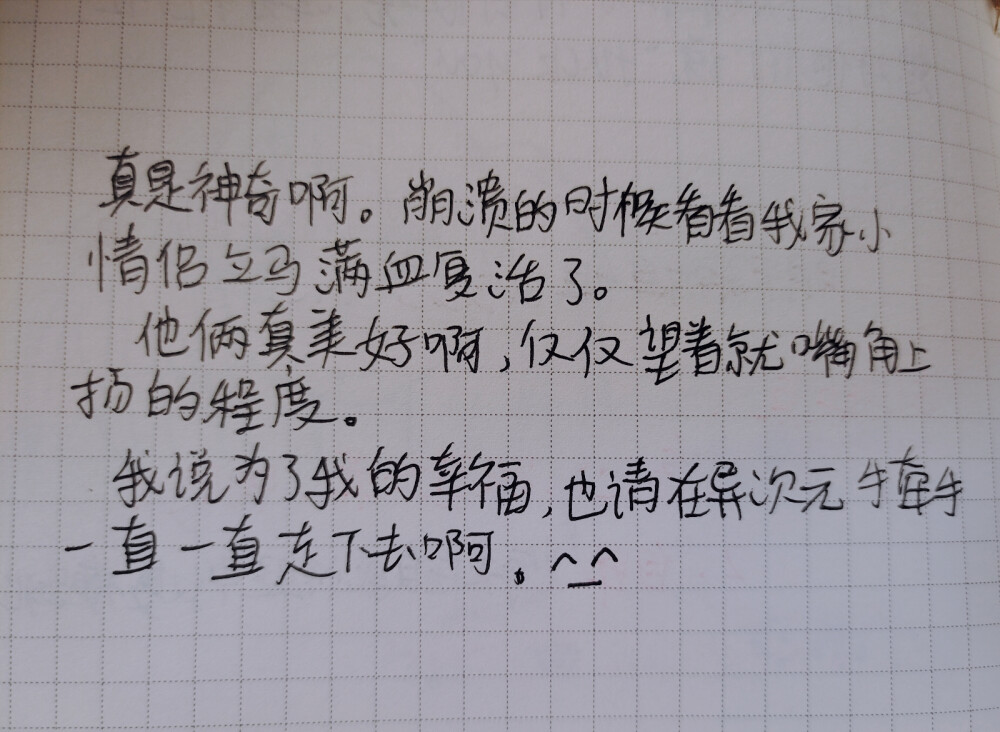 真是神奇啊。崩溃的时候看看我家小
情侣立马满血复活了。
他俩真美好啊,仅仅望着就嘴角上
扬的程度。
我说为了我的幸福,也请在异次元牵手
一直一直走下去啊。^_^